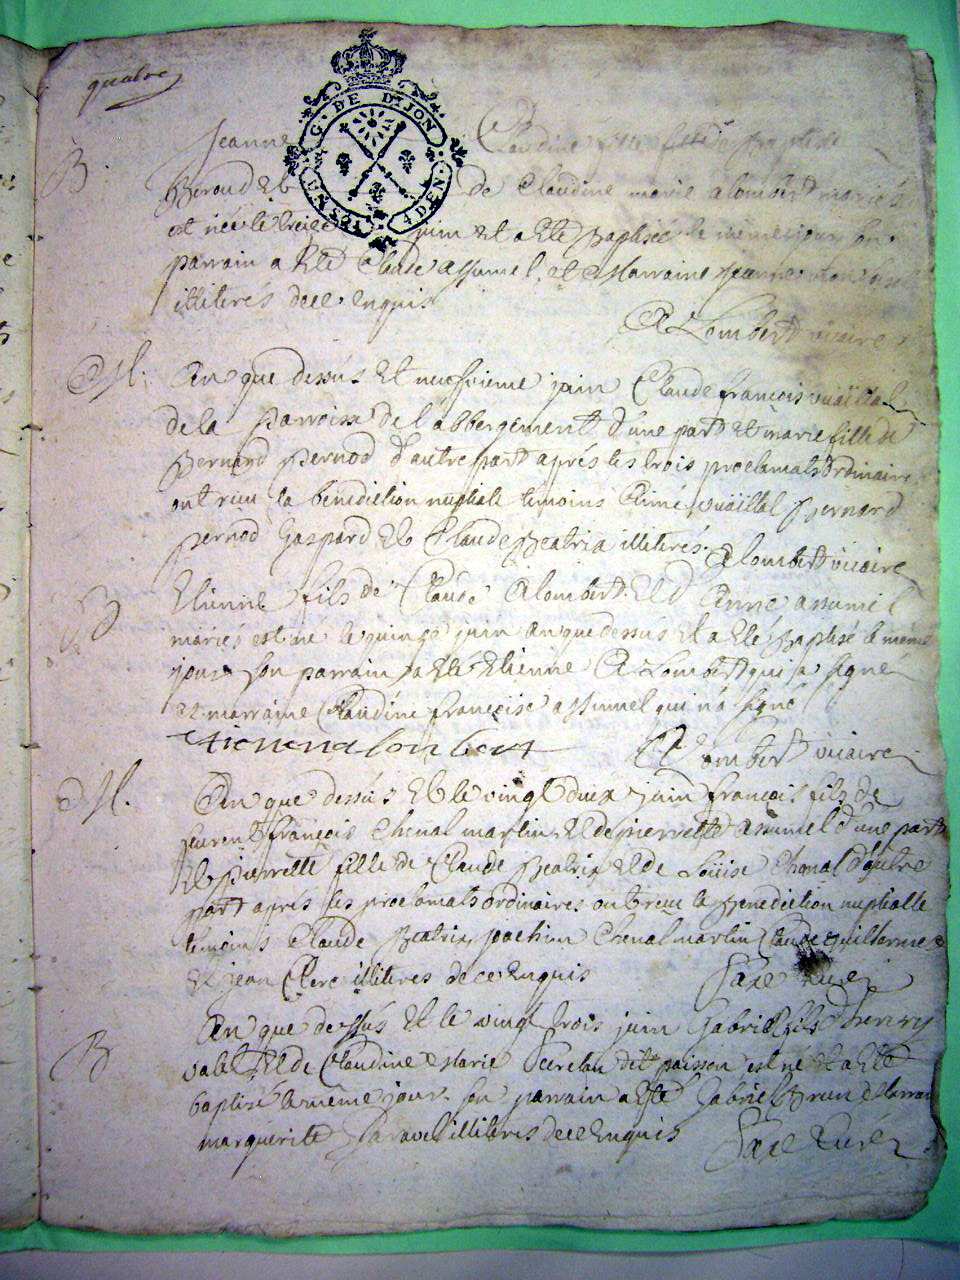 quatre
G. DE DIJON
4 DEN.
B Jeanne Claudine fille
de Claudine marie alombert mariés
est née le treize juin et a eté Baptisée le même jour son
parrain a eté Claude assumel et Marraine jeanne
illiterés dece Enquis
A Lombert vicaire
M. An que dessus et neufvieme juin Claude françois vuaillat
de la parroisse de l'abbergement d'une part et marie fille de
Bernard Pernod d'autre part aprés les trois proclamats ordinaire
ont reçu la benediction nuptiale temoins Aimé vuaillat Bernard
pernod Gaspard et Claude Beatrix illiterés. alombert vicaire
B Etienne fils de Claude Alombert et d'Anne assumel
mariés est né le quinze juin an que dessus et a eté Baptisé le même
jour son parrain a eté Etienne A Lombert qui a signé
et marraine Claudine françoise assumel qui n'a signé
etienne alombert A Lombert vicaire
M. An que dessus et le vingt deux juin françois fils de
Laurent françois Chenal martin et de pierrette assumel d'une part
et pierrette fille de Claude Beatrix et de Loüise Chenal d'autre
part aprés les proclamats ordinaires ont reçu la Benediction nuptialle
temoins Claude Beatrix joachim Chenal martin Claude guillerme
et jean Clerc illiteres de ce Enquis Saxe Curé
B An que dessus et le vingt trois juin Gabriel fils d'henry
valet et de Claudine Marie dit poisson est né et a eté
baptisé le même jour son parrain a eté Gabriel Brun Marrai
marguerite illiteres dece Enquis Saxe Curé